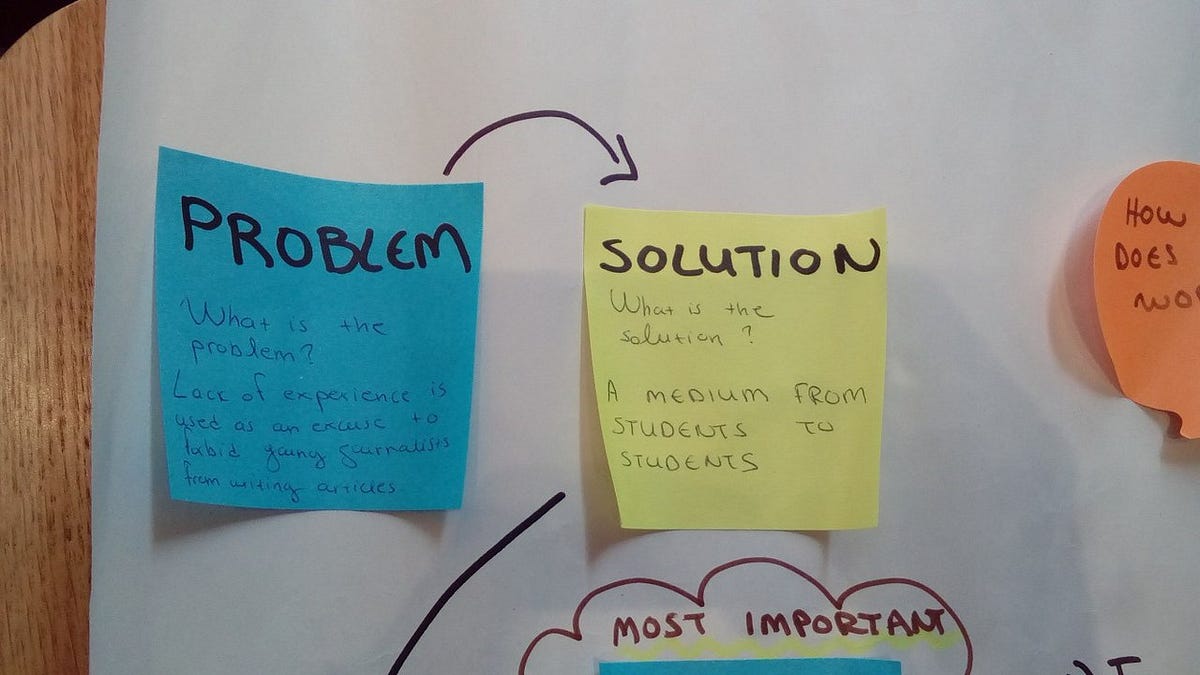 PROBLEM
What is the
problem?
Lack of experience is
used as an excuse to
fabid young journalists
from writing articles
SOLUTION
What is the
solution ?
A MEDIUM FROM
STUDENTS TO
STUDENTS
HOW
DOES
MOST IMPORTANT